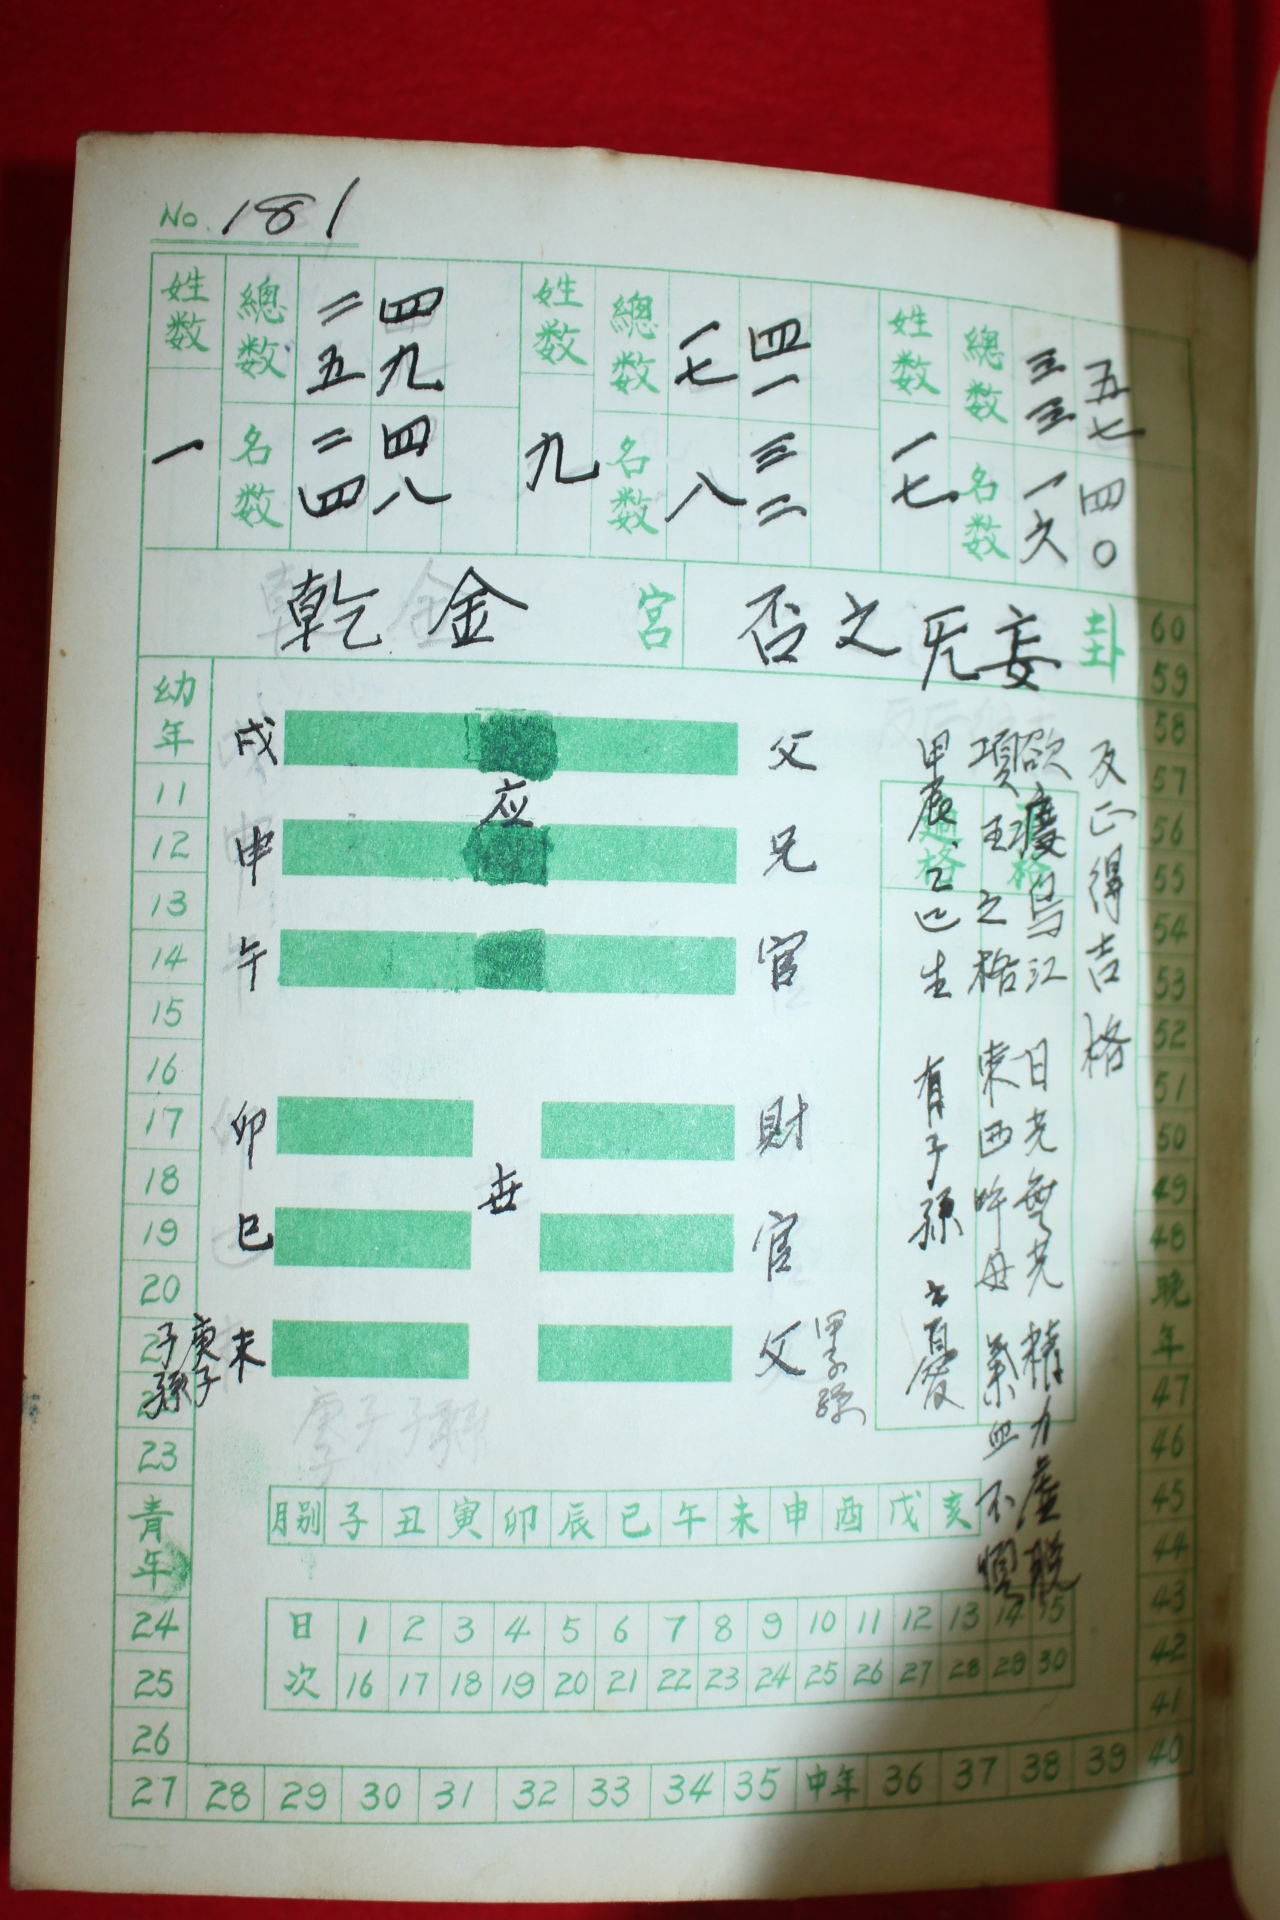 No. 181
姓数 一
總数 二五 四九
名数 二四 四八
姓数 九
總数 一七 四一
名数 八 三二
姓数 一七
總数 三三 五七
名数 一六 四〇
乾金 宮
否之无妄 卦
幼年 11 12 13 14 15 16 17 18 19 20 23 青年 24 25 26 27
28 29 30 31 32 33 34 35 中年 36 37 38 39 40
60 59 58 57 56 55 54 53 52 51 50 49 48 晩年 47 46 45 44 43 42 41
戌 父
应
申 兄
午 官
卯 財
世
巳 官
未 父
庚子
子孫
甲子
孫
反正得吉格
欲渡烏江 日光無光 精力虛脫
項王之格 東西 氣血不調
甲辰 乙巳生 有子孫
格
格
月別 子 丑 寅 卯 辰 巳 午 未 申 酉 戊 亥
日 1 2 3 4 5 6 7 8 9 10 11 12 13 14 15
次 16 17 18 19 20 21 22 23 24 25 26 27 28 29 30